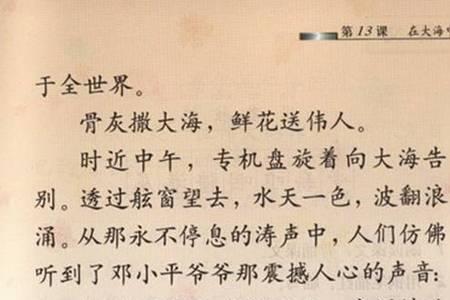 第13课 在大海
于全世界。
骨灰撒大海，鲜花送伟人。
时近中午，专机盘旋着向大海告
别。透过舷窗望去，水天一色，波翻浪
涌。从那永不停息的涛声中，人们仿佛
听到了邓小平爷爷那震撼人心的声音：